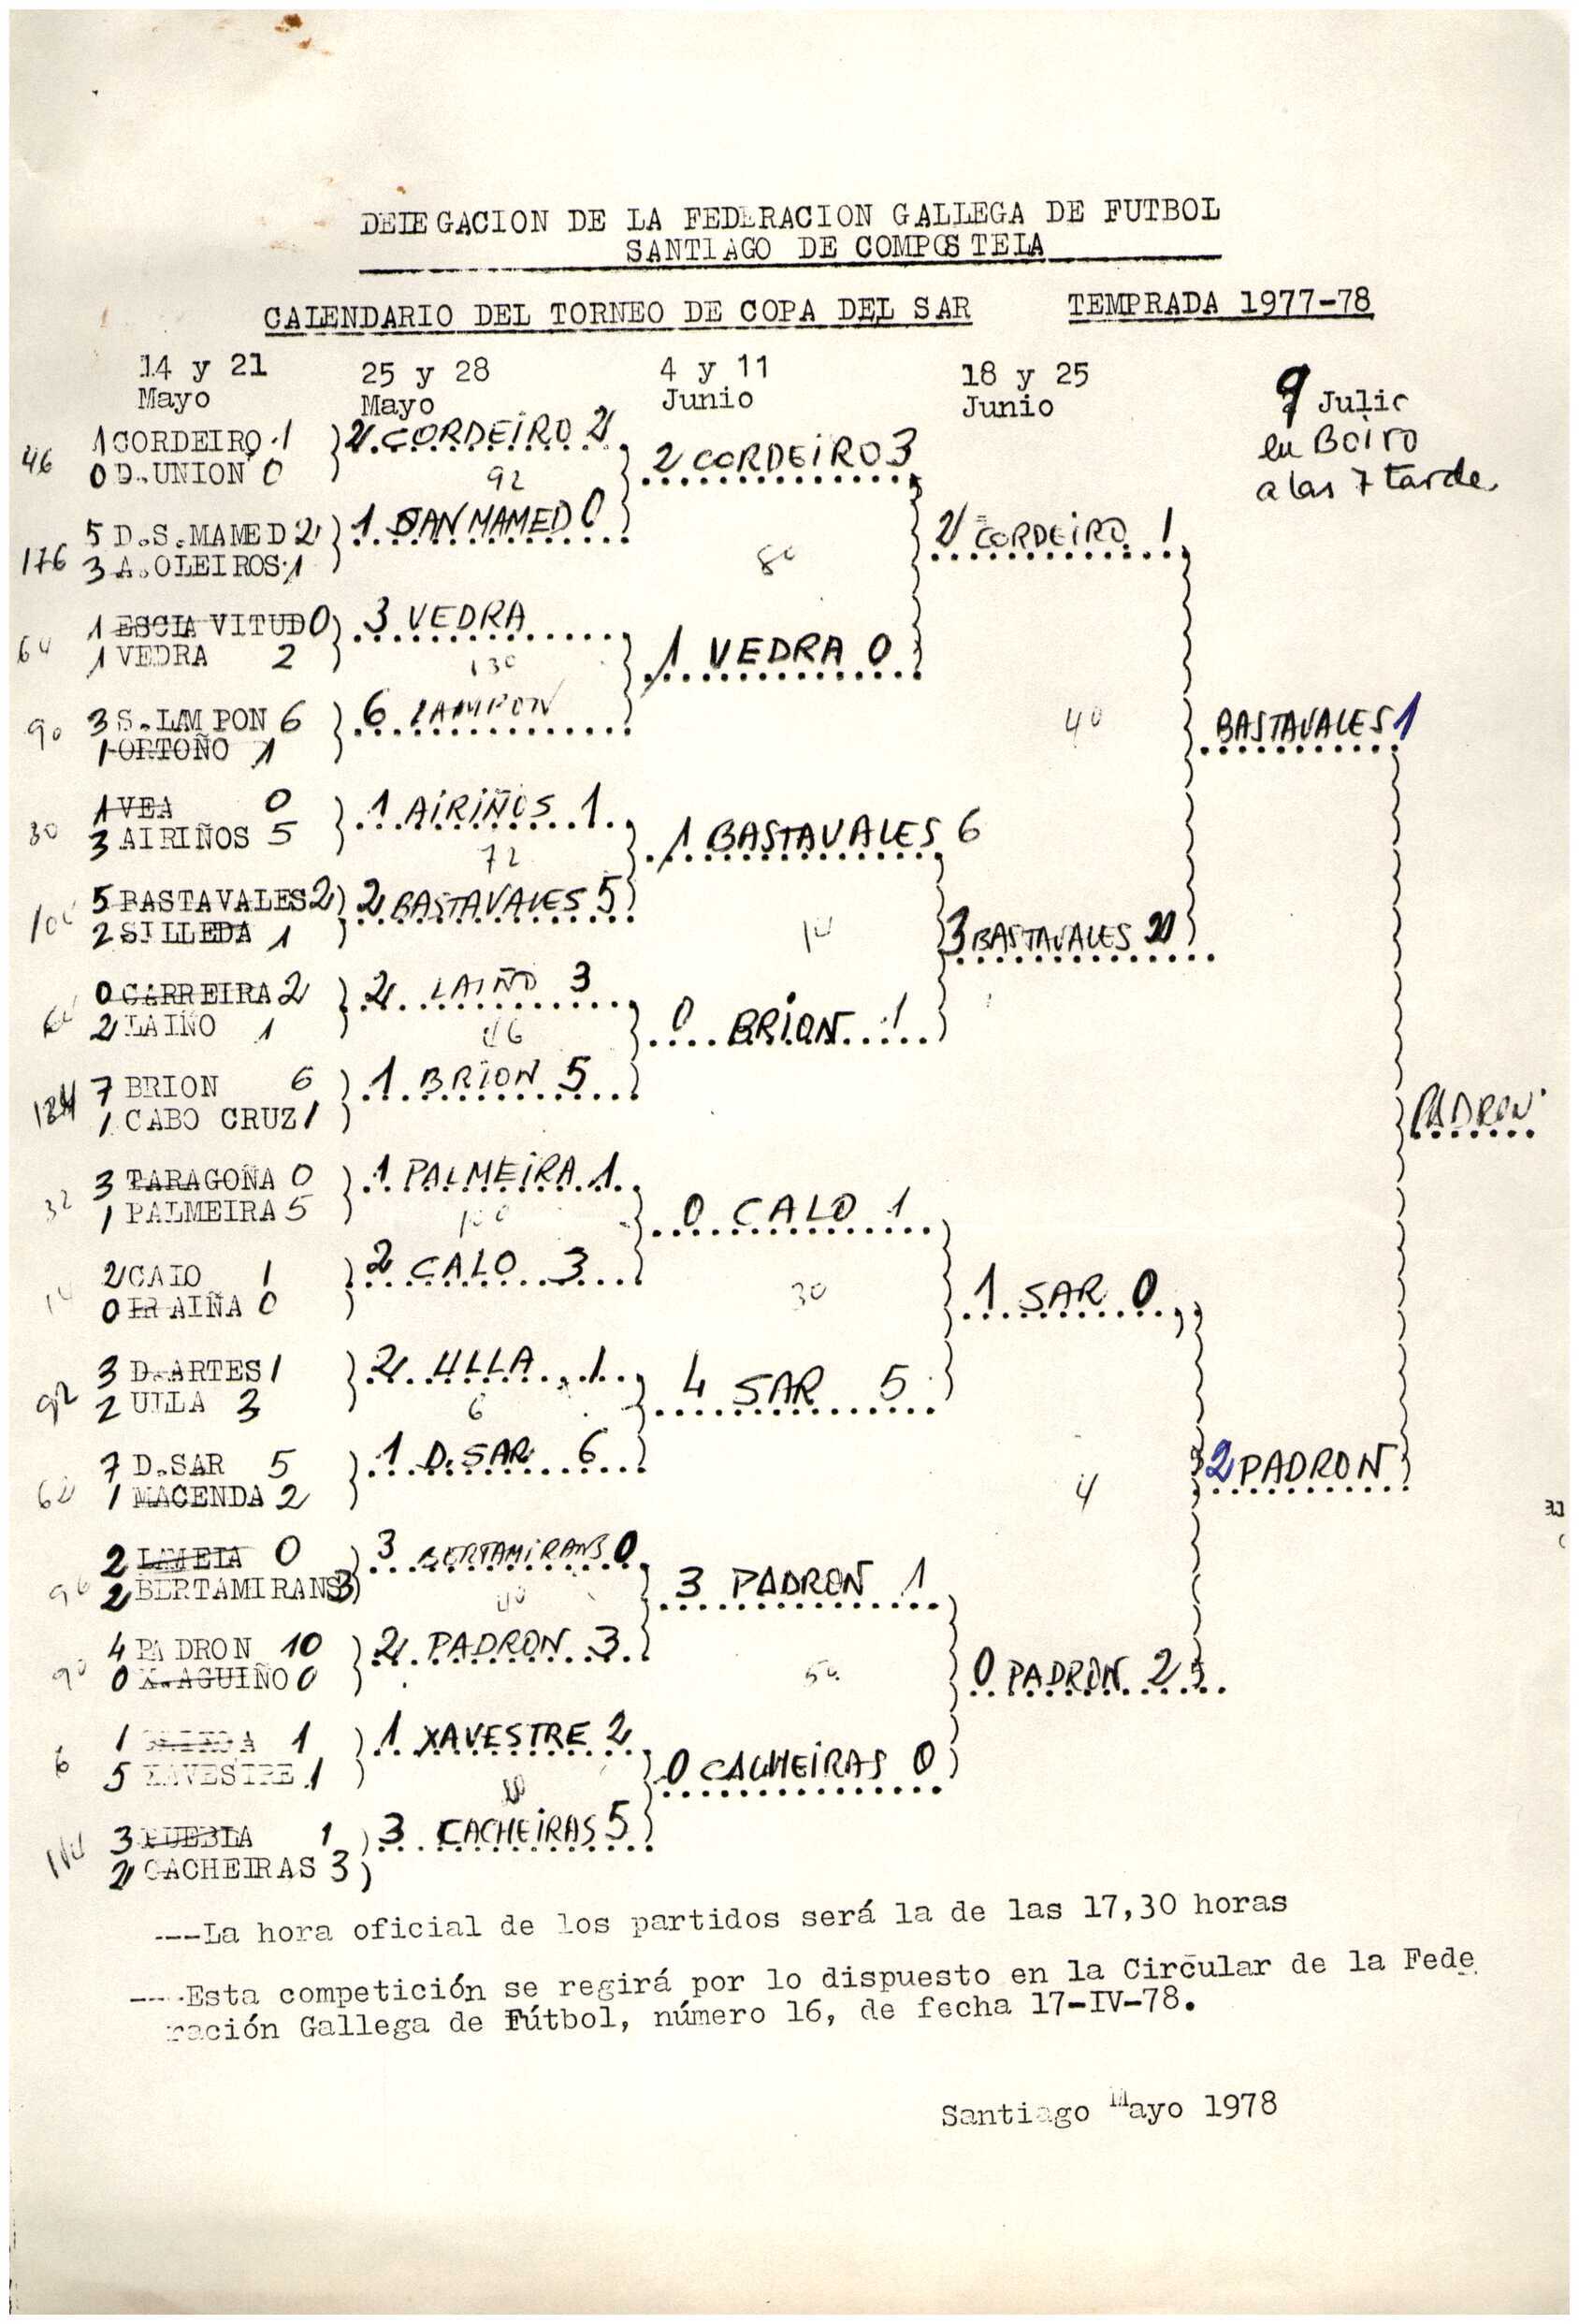 DELEGACION DE LA FEDERACION GALLEGA DE FUTBOL
SANTIAGO DE COMPOSTELA
CALENDARIO DEL TORNEO DE COPA DEL SAR TEMPRADA 1977-78
14 y 21 Mayo
25 y 28 Mayo
4 y 11 Junio
18 y 25 Junio
9 Julio
en Boiro
a las 7 tarde
46
1 CORDEIRO 1
0 D. UNION 0
176
5 D.S.MAMED 2
3 A.OLEIROS 1
64
1 ESCLAVITUD 0
1 VEDRA 2
90
3 S.LAMPON 6
1 ORTOÑO 1
30
1 VEA 0
3 AIRIÑOS 5
5 BASTAVALES 2
2 SILLEDA 1
0 CARREIRA 2
2 LAIÑO 1
124
7 BRION 6
1 CABO CRUZ 1
32
3 TARAGOÑA 0
1 PALMEIRA 5
2 CALO 1
0 FRAIÑA 0
92
3 D.ARTES 1
2 ULLA 3
7 D.SAR 5
1 MACENDA 2
2 0
2 BERTAMIRANS 3
4 PADRON 10
0 X.AGUIÑO 0
6
1 1
5 XAVESTRE 1
3 PUEBLA 1
2 CACHEIRAS 3
2 CORDEIRO 2
92
1 SAN MAMED 0
3 VEDRA
130
6 LAMPON
1 AIRIÑOS 1
72
2 BASTAVALES 5
2 LAIÑO 3
1 BRION 5
1 PALMEIRA 1
100
2 CALO 3
2 ULLA 1
6
1 D.SAR 6
3 BERTAMIRANS 0
2 PADRON 3
1 XAVESTRE 2
3 CACHEIRAS 5
2 CORDEIRO 3
80
1 VEDRA 0
1 BASTAVALES 6
0 BRION 1
0 CALO 1
30
4 SAR 5
3 PADRON 1
50
0 CACHEIRAS 0
2 CORDEIRO 1
40
3 BASTAVALES
1 SAR 0
4
0 PADRON 2
BASTAVALES 1
2 PADRON
PADRON
---La hora oficial de los partidos será la de las 17,30 horas
----Esta competición se regirá por lo dispuesto en la Circular de la Fede
ración Gallega de Fútbol, número 16, de fecha 17-IV-78.
Santiago Mayo 1978